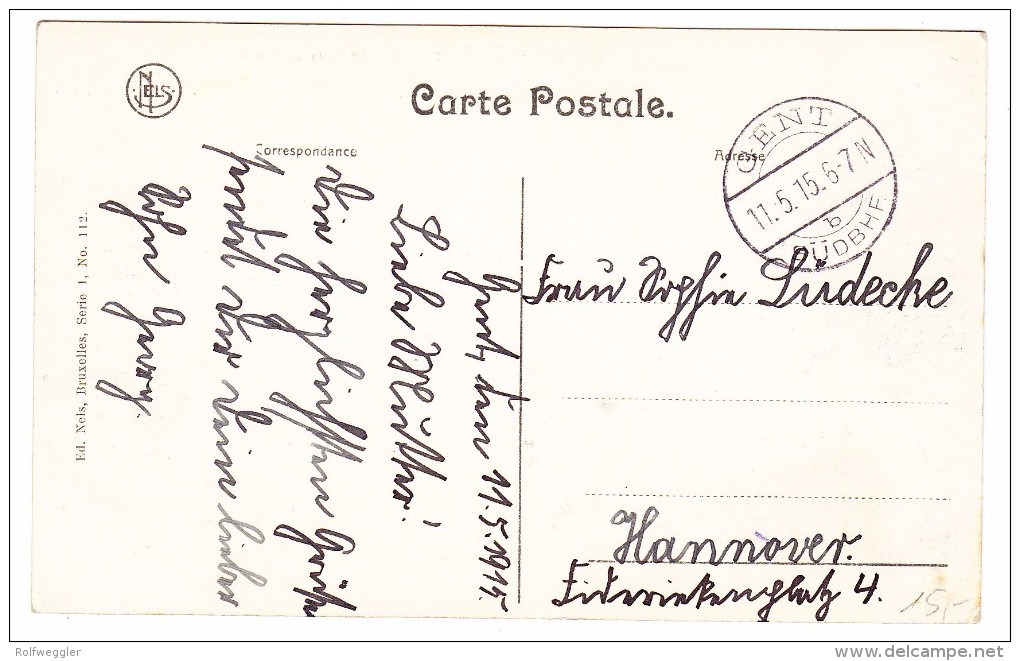 NELS
Carte Postale.
Correspondance
Adresse
GENT
11.5.15.6-7 N
b
SÜDBHF.
Gent, den 11.5.1915.
Liebe Mutter!
Die herzlichsten Grüße
sendet Dir Dein lieber
Sohn Georg
Frau Sophie Lüdecke
Hannover.
Friederikenplatz 4.
15,-
Ed. Nels, Bruxelles, Serie 1, No. 112.
Rolfweggler
delcampe.net